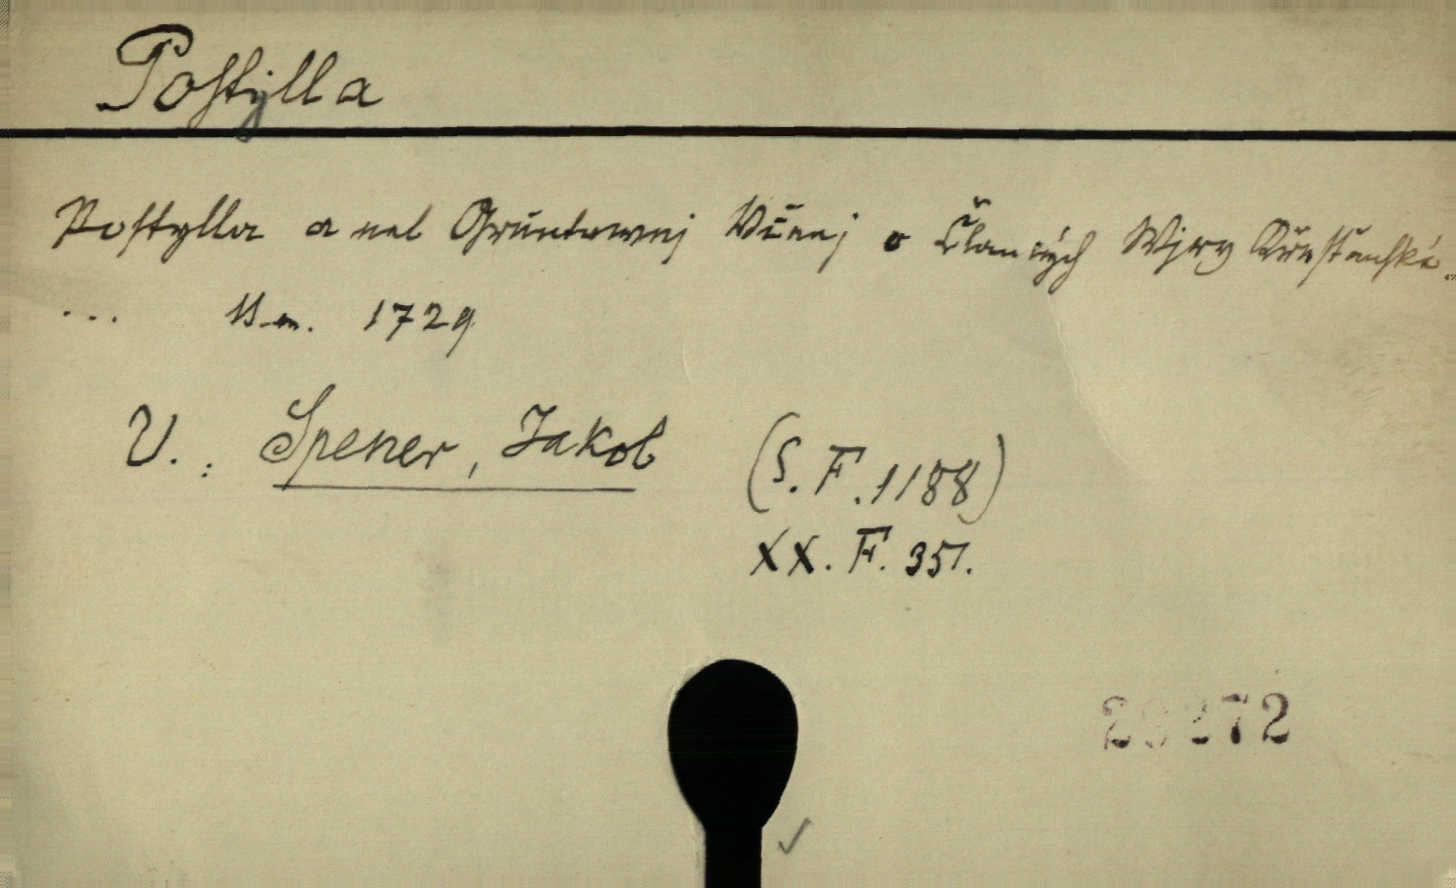 Postylla
Postylla aneb Gruntownej Včenj o Člancých Wjry Křesťanské
... 1729
V.: Spener, Jakob (S. F. 1188)
XX. F. 351.
29272